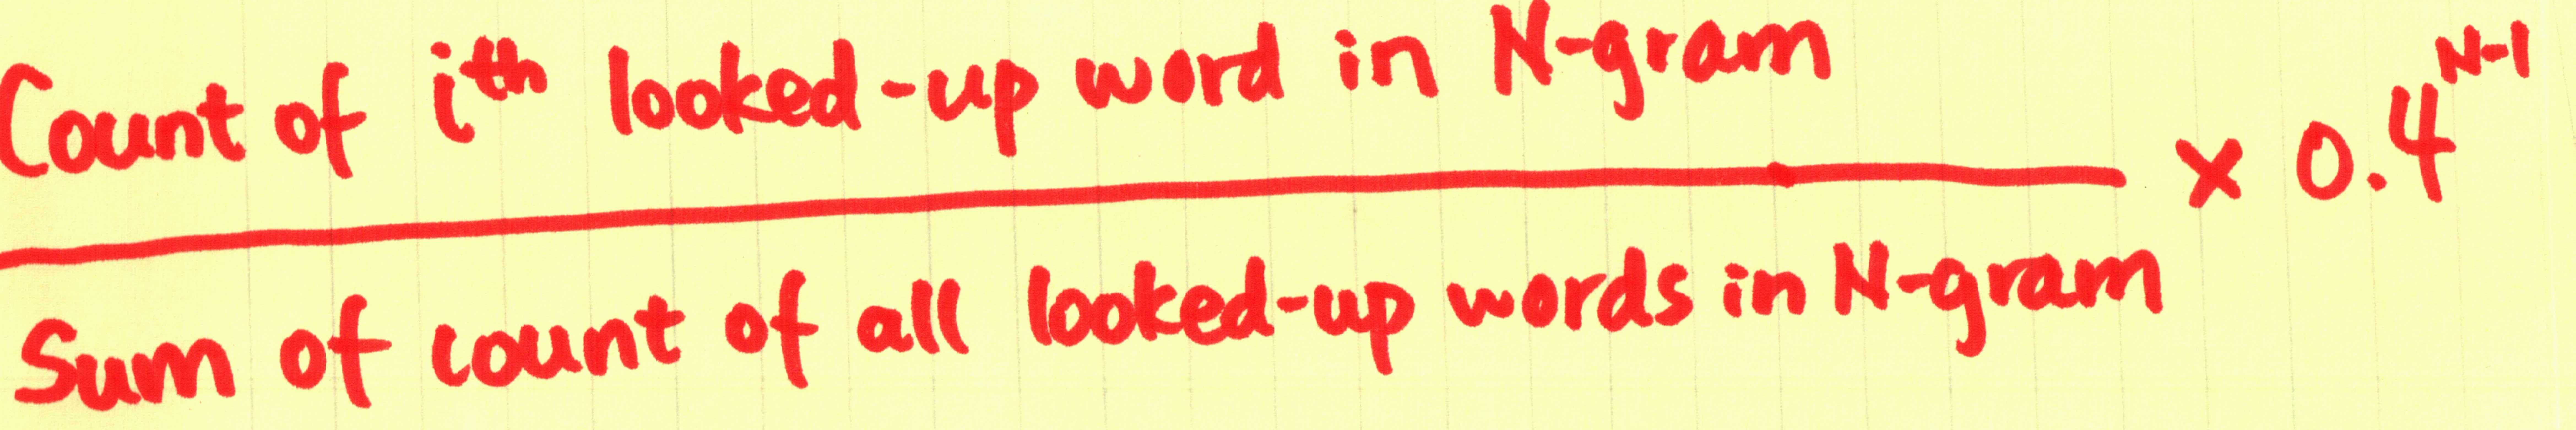 Count of ith looked-up word in N-gram
× 0.4^N-1
Sum of count of all looked-up words in N-gram